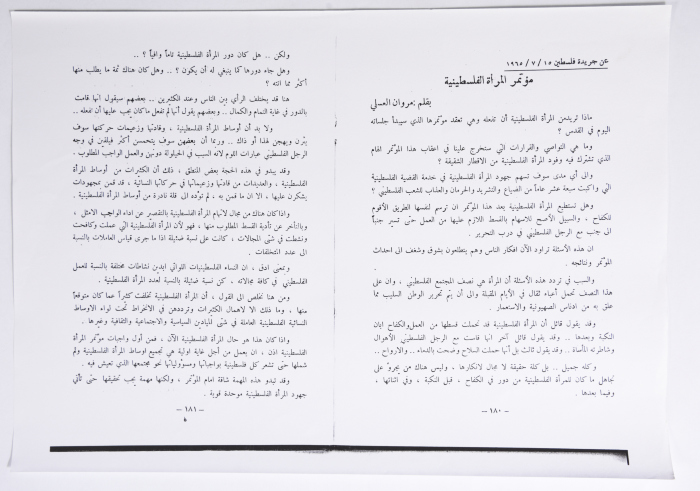 عن جريدة فلسطين ١٥ / ٧ / ١٩٦٥
مؤتمر المرأة الفلسطينية
بقلم :مروان العسلي
ماذا تريد من المرأة الفلسطينية أن تفعله وهي تعقد مؤتمرها الذي سيبدأ جلساته
اليوم في القدس ؟
وما هي التواصي والقرارات التي ستخرج علينا في اعقاب هذا المؤتمر الهام
الذي تشترك فيه وفود المرأة الفلسطينية من الاقطار الشقيقة ؟
والى أي مدى سوف تسهم جهود المرأة الفلسطينية في خدمة القضية الفلسطينية
التي واكبت سبعة عشر عاماً من الضياع والتشريد والحرمان والعذاب للشعب الفلسطيني ؟
وهل تستطيع المرأة الفلسطينية بعد هذا المؤتمر ان ترسم لنفسها الطريق الأقوم
للكفاح ، والسبيل الأصح للاسهام بالقسط اللازم عليها من العمل حتى تسير جنباً
الى جنب مع الرجل الفلسطيني في درب التحرير .
ان هذه الأسئلة تراود الآن افكار الناس وهم يتطلعون بشوق وشغف الى احداث
المؤتمر ونتائجه .
والسبب في تردد هذه الأسئلة أن المرأة هي نصف المجتمع الفلسطيني ، وان على
هذا النصف تحمل أعباء ثقال في الأيام المقبلة والى أن يتم تحرير الوطن السليب مما
علق به من ادناس الصهيونية والاستعمار .
وقد يقول قائل أن المرأة الفلسطينية قد تحملت قسطها من العمل والكفاح ابان
النكبة وبعدها .. وقد يقول قائل آخر انها قاست مع الرجل الفلسطيني الأهوال
وشاطرته المأساة .. وقد يقول ثالث بل أنها حملت السلاح وضحت بالدماء .. والارواح ..
وكله جميل .. بل كله حقيقة لا مجال لانكارها ، وليس هناك من يجرؤ على
تجاهل ما كان للمرأة الفلسطينية من دور في الكفاح ، قبل النكبة ، وفي اثنائها ،
وفيما بعدها .
— ١٨٠ —
ولكن .. هل كان دور المرأة الفلسطينية تاماً وافياً ؟ ..
وهل جاء دورها كما ينبغي له أن يكون ؟ .. وهل كان هناك ثمة ما يطلب منها
أكثر مما اتته ؟
هنا قد يختلف الرأي بين الناس وعند الكثيرين .. بعضهم سيقول انها قامت
بالدور في غاية التمام والكمال .. وبعضهم يقول أنها لم تفعل ما كان يجب عليها أن تفعله ..
ولا بد أن أوساط المرأة الفلسطينية ، وقادتها وزعيمات حركتها سوف
يثرن ويهجن لهذا او ذاك .. وربما أن بعضهن سوف يتحمسن أكثر فيلقين في وجه
الرجل الفلسطيني عبارات اللوم لانه السبب في الحيلولة دونهن والعمل الواجب المطلوب .
وقد يبدو في هذه الحجة بعض المنطق ، ذلك أن الكثيرات من أوساط المرأة
الفلسطينية ، والعديدات من قادتها وزعيماتها في حركاتها النسائية ، قد قمن بمجهودات
يشكرن عليها ، الا ان ما قمن به ، لم تؤده الى قلة نادرة من أوساط المرأة الفلسطينية .
واذا كان هناك من مجال لاتهام المرأة الفلسطينية بالتقصير عن اداء الواجب الامثل ،
وبالتأخر عن تأدية القسط المطلوب منها ، فهو لأن المرأة الفلسطينية التي عملت وكافحت
ونشطت في شتى المجالات ، كانت على نسبة ضئيلة اذا ما جرى قياس العاملات بالنسبة
الى عدد المتخلفات .
وتعنى ادق ، ان النساء الفلسطينيات اللواتي ابدين نشاطات مختلفة بالنسبة للعمل
الفلسطيني في كافة مجالاته ، كن نسبة ضئيلة بالنسبة لعدد المرأة الفلسطينية .
ومن هنا نخلص الى القول ، أن المرأة الفلسطينية تخلفت كثيراً عما كان متوقعاً
منها ، وما ذلك الا لاهمال الكثيرات وترددهن في الانخراط تحت لواء الاوساط
النسائية الفلسطينية العاملة في شتى الميادين السياسية والاجتماعية والثقافية وغيرها .
واذا كان هذا هو حال المرأة الفلسطينية الآن ، فمن أول واجبات مؤتمر المرأة
الفلسطينية اذن ، ان يعمل من أجل غاية اولية هي تجميع اوساط المرأة الفلسطينية ولم
شملها حتى تشعر كل فلسطينية بواجباتها ومسؤولياتها نحو مجتمعها الذي تعيش فيه .
وقد تبدو هذه المهمة شاقة امام المؤتمر ، ولكنها مهمة يجب تحقيقها حتى تأتي
جهود المرأة الفلسطينية موحدة قوية .
— ١٨١ —